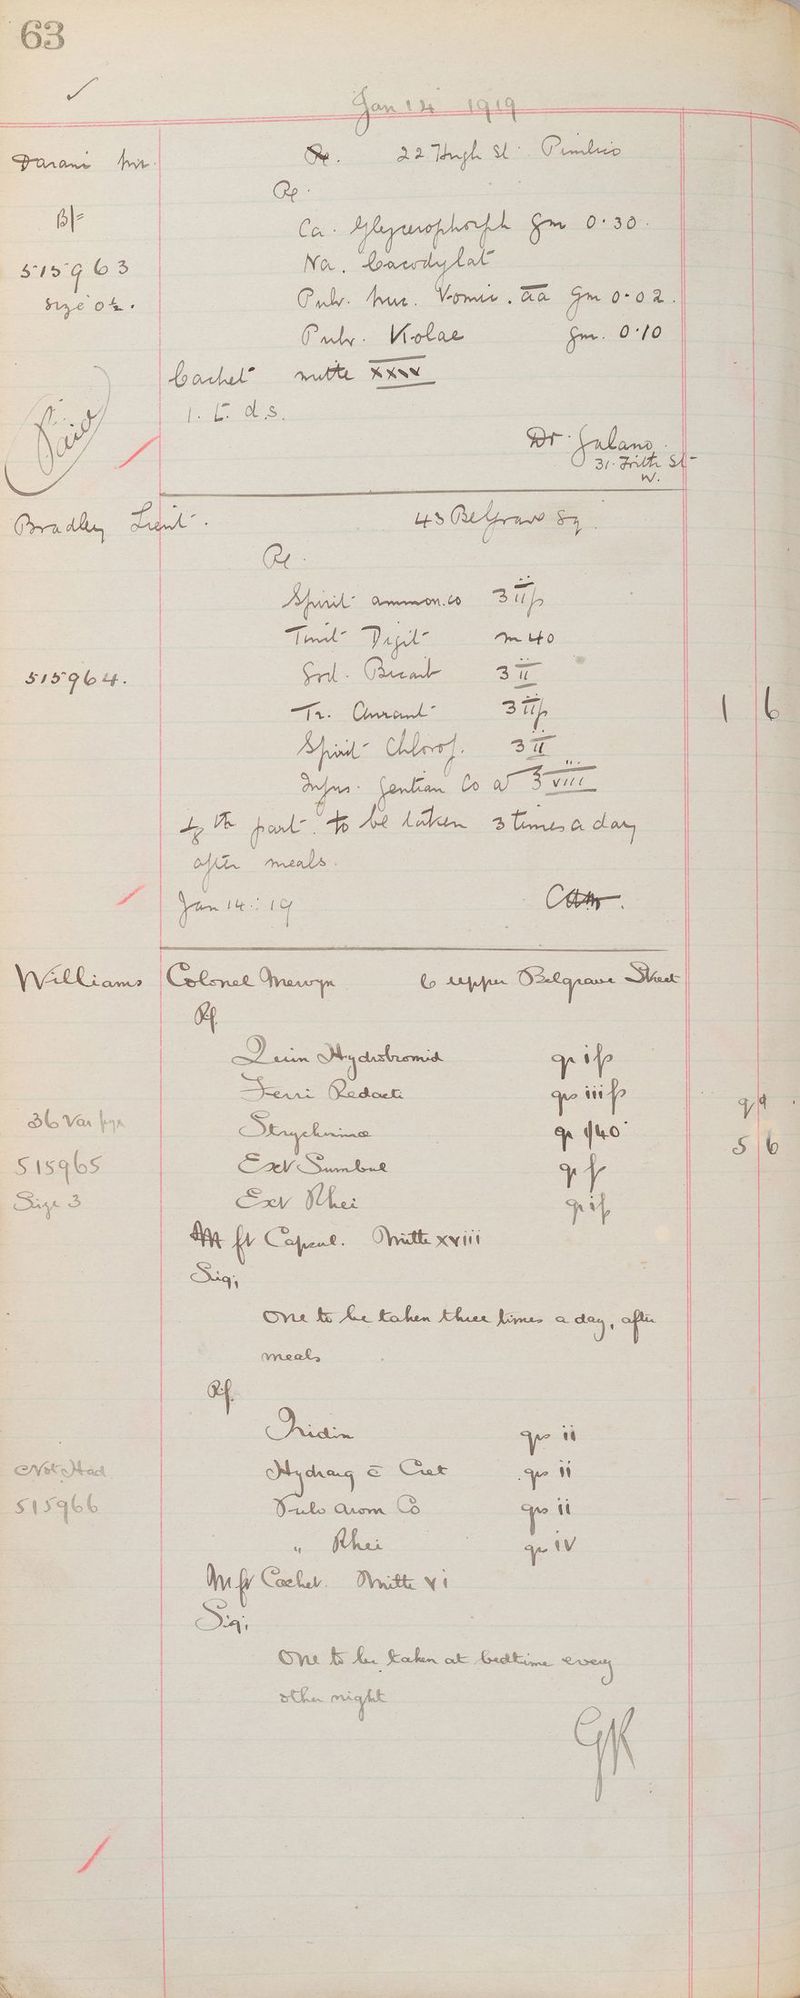 63
Jan 14 1919
Darani
22 Hugh St. Pimlico
Rp.
B/=
Ca. Glycerophosph gm 0.30.
515963
Na. Cacodylat
size 0½.
Pulv. Nuc. Vomic. aa gm 0.02.
Pulv. Kolae gm. 0.10
Cachet mitte xxxv
1. t. d.s.
Paid
Dr. Galano
31. Frith St
W.
Bradley Lieut. 43 Belgrave Sq.
Rx.
Spirit ammon. co ʒiiß
Tinct Digit m 40
515964. Sod. Bicarb ʒii
Tr. Aurant ʒiiß
1 6
Spirit Chlorof. ʒii
Infus. Gentian Co ad ℥viii
⅛th part. to be taken 3 times a day
after meals.
Jan 14: 19
Williams Colonel Mervyn 6 Upper Belgrave Street
Rx
Quin Hydrobromid gr iß
Ferri Redacti grs iiiß
36 Var
Strychninae gr 1/40
5 6
515965 Ext Sumbul gr ß
Size 3 Ext Rhei gr iß
M ft Capsul. Mitte xviii
Sig;
One to be taken three times a day, after
meals
Rx
Iridin grs ii
Not Had Hydrarg c̄ Cret grs ii
515966 Pulv Arom Co grs ii
" Rhei grs iv
M ft Cachet. Mitte vi
Sig;
One to be taken at bedtime every
other night
GK